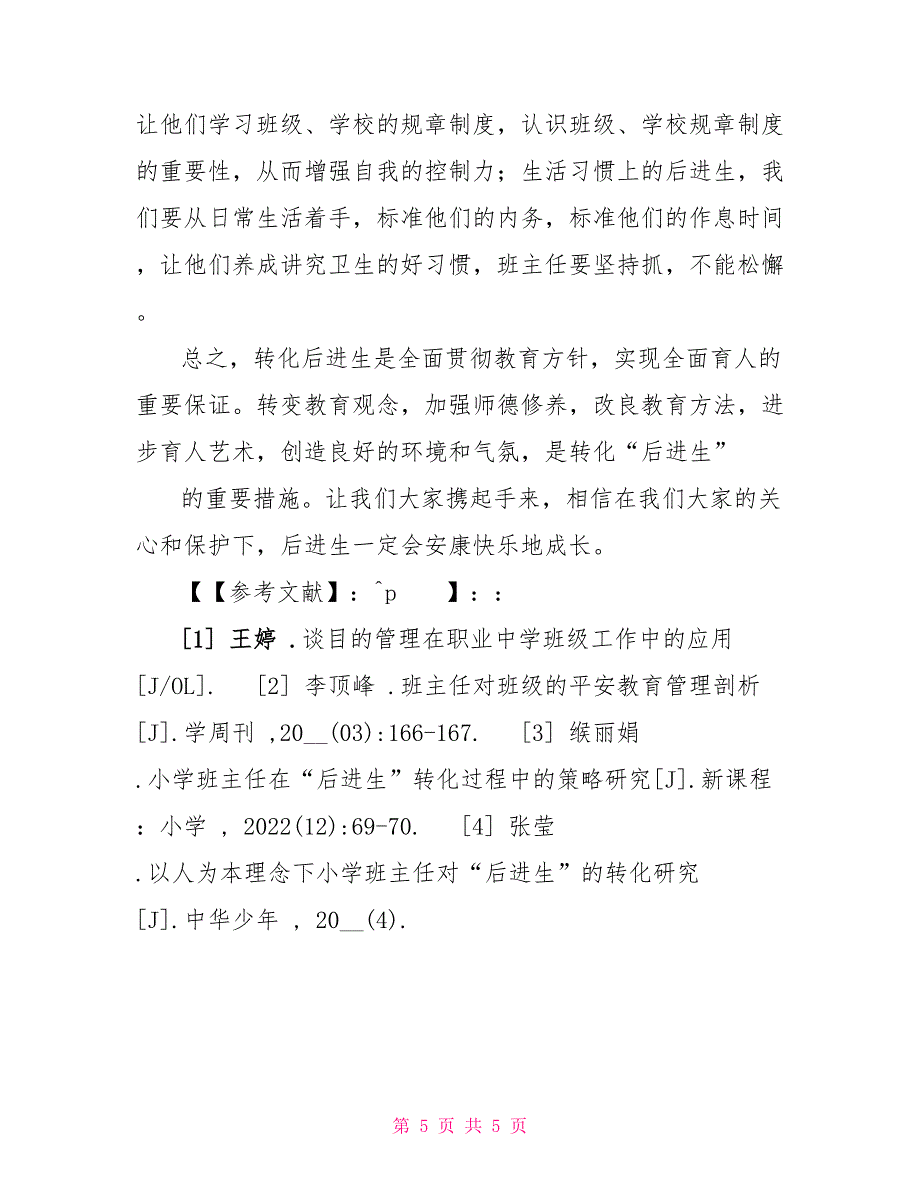 让他们学习班级、学校的规章制度，认识班级、学校规章制度
的重要性，从而增强自我的控制力；生活习惯上的后进生，我
们要从日常生活着手，标准他们的内务，标准他们的作息时间
，让他们养成讲究卫生的好习惯，班主任要坚持抓，不能松懈
。
总之，转化后进生是全面贯彻教育方针，实现全面育人的
重要保证。转变教育观念，加强师德修养，改良教育方法，进
步育人艺术，创造良好的环境和气氛，是转化“后进生”
的重要措施。让我们大家携起手来，相信在我们大家的关
心和保护下，后进生一定会安康快乐地成长。
【【参考文献】：^p 】：：
[1] 王婷 .谈目的管理在职业中学班级工作中的应用
[J/OL]. [2] 李顶峰 .班主任对班级的平安教育管理剖析
[J].学周刊 ,20__(03):166-167. [3] 缑丽娟
.小学班主任在“后进生”转化过程中的策略研究[J].新课程
：小学 , 2022(12):69-70. [4] 张莹
.以人为本理念下小学班主任对“后进生”的转化研究
[J].中华少年 , 20__(4).
第 5 页 共 5 页